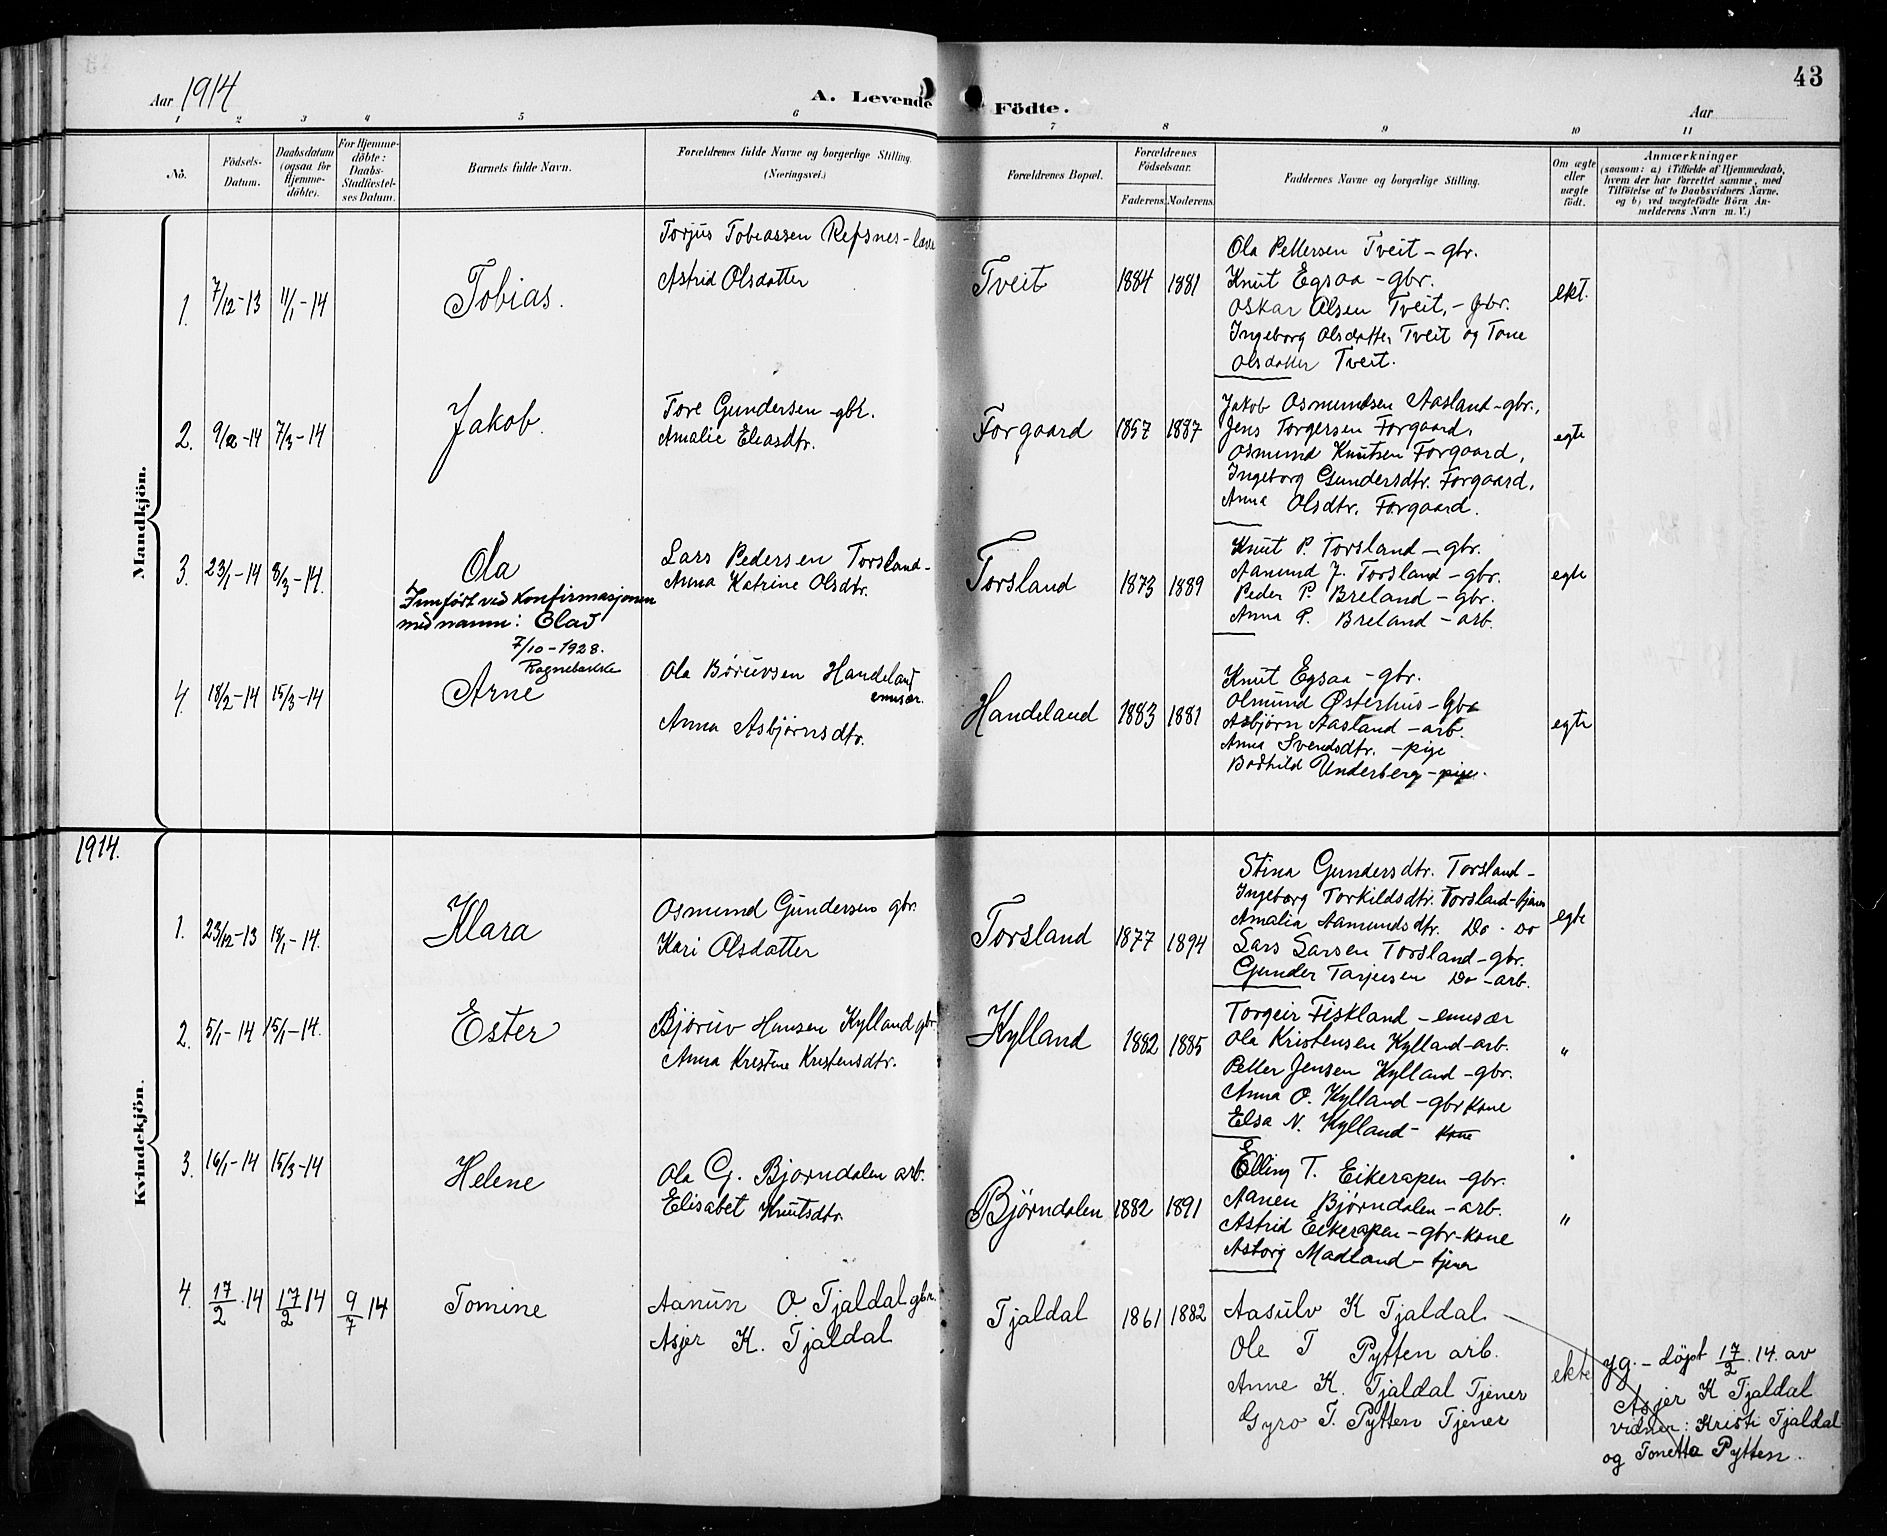 43
Aar 1914
A. Levende Födte.
Aar
1 2 3 4 5 6 7 8 9 10 11
No.
Födsels-Datum.
Daabsdatum (ogsaa for Hjemme-döbte).
For Hjemme-döbte: Daabs-Stadfæstel-ses Datum.
Barnets fulde Navn.
Forældrenes fulde Navne og borgerlige Stilling. (Næringsvei.)
Forældrenes Bopæl.
Forældrenes Födselsaar.
Faderens. Moderens.
Faddernes Navne og borgerlige Stilling.
Om ægte eller uægte födt.
Anmærkninger
(saasom: a) i Tilfælde af Hjemmedaab,
hvem der har forrettet samme, med
Tilföielse af to Daabsvidners Navne,
og b) ved uægtefödte Börn An-
melderens Navn m. V.)
Mandkjön.
1. 7/12-13 11/1-14
Tobias.
Torjus Tobiassen Refsnes-
Astrid Olsdatter
Tveit 1884 1881
Ola Pettersen Tveit - gbr.
Knut Egsaa - gbr.
Oskar Olsen Tveit, - gbr.
Ingeborg Olsdatter Tveit og Tone
Olsdatter Tveit.
ekt.
2. 9/2-14 7/3-14
Jakob.
Tore Gundersen gbr.
Amalie Eliasdtr.
Forgaard 1857 1887
Jakob Osmundsen Aasland-gbr.,
Jens Torgersen Forgaard,
Osmund Knutsen Forgaard,
Ingeborg Gundersdtr. Forgaard,
Anna Olsdtr. Forgaard.
egte
3. 23/1-14 8/3-14.
Ola
Innført ved Konfirmasjonen
med namn: Olav
7/10-1928.
Lars Pedersen Torsland-
Anna Katrine Olsdtr.
Torsland 1873 1889
Knut P. Torsland - gbr.
Aanund J. Torsland - gbr.
Peder P. Breland - gbr.
Anna P. Breland - arb.
egte
4. 18/2-14 15/3-14
Arne
Ola Børuvsen Handeland
emisær.
Anna Asbjørnsdtr.
Handeland 1883 1881
Knut Egsaa - gbr.
Olmund Østerhus - gbr
Asbjørn Aasland - arb.
Anna Svendsdtr. - pige
Bodhild Underberg - pige.
egte
1914.
Kvindekjön.
1. 23/12-13 18/1-14.
Klara
Osmund Gundersen gbr.
Kari Olsdatter
Torsland 1877 1894
Stina Gundersdtr. Torsland -
Ingeborg Torkildsdtr. Torsland-tjener
Amalia Aamundsdtr. Do - Do
Lars Larsen Torsland - gbr.
Gunder Tarjeisen Do - arb.
egte
2. 5/1-14 15/1-14.
Ester
Bjøruv Hansen Kylland gbr
Anna Kristine Kristensdtr.
Kylland 1882 1885
Torgeir Fiskland - emisær
Ola Kristensen Kylland-arb.
Petter Jensen Kylland - gbr.
Anna O. Kylland - gbr kone
Elsa N. Kylland - Kone
"
3. 16/1-14 15/3-14
Helene
Ola G. Bjørndalen arb.
Elisabet Knutsdtr.
Bjørndalen 1882 1891
Elling T. Eikerapen - gbr.
Aanen Bjørndalen - arb.
Astrid Eikerapen - gbr-kone
Asborg Madland - tjener
"
4. 17/2.14 17/2 14 9/7 14
Tomine
Aanun O Tjaldal gbr.
Asjer K. Tjaldal
Tjaldal 1861 1882
Aasulv K Tjaldal
Ole T Pytten arb.
Anne K. Tjaldal Tjener
Gyro T. Pytten Tjener
ekte
Hg. - døpt 17/2.14. av
Asjer K Tjaldal
vidner: Kristi Tjaldal
og Tonetta Pytten.